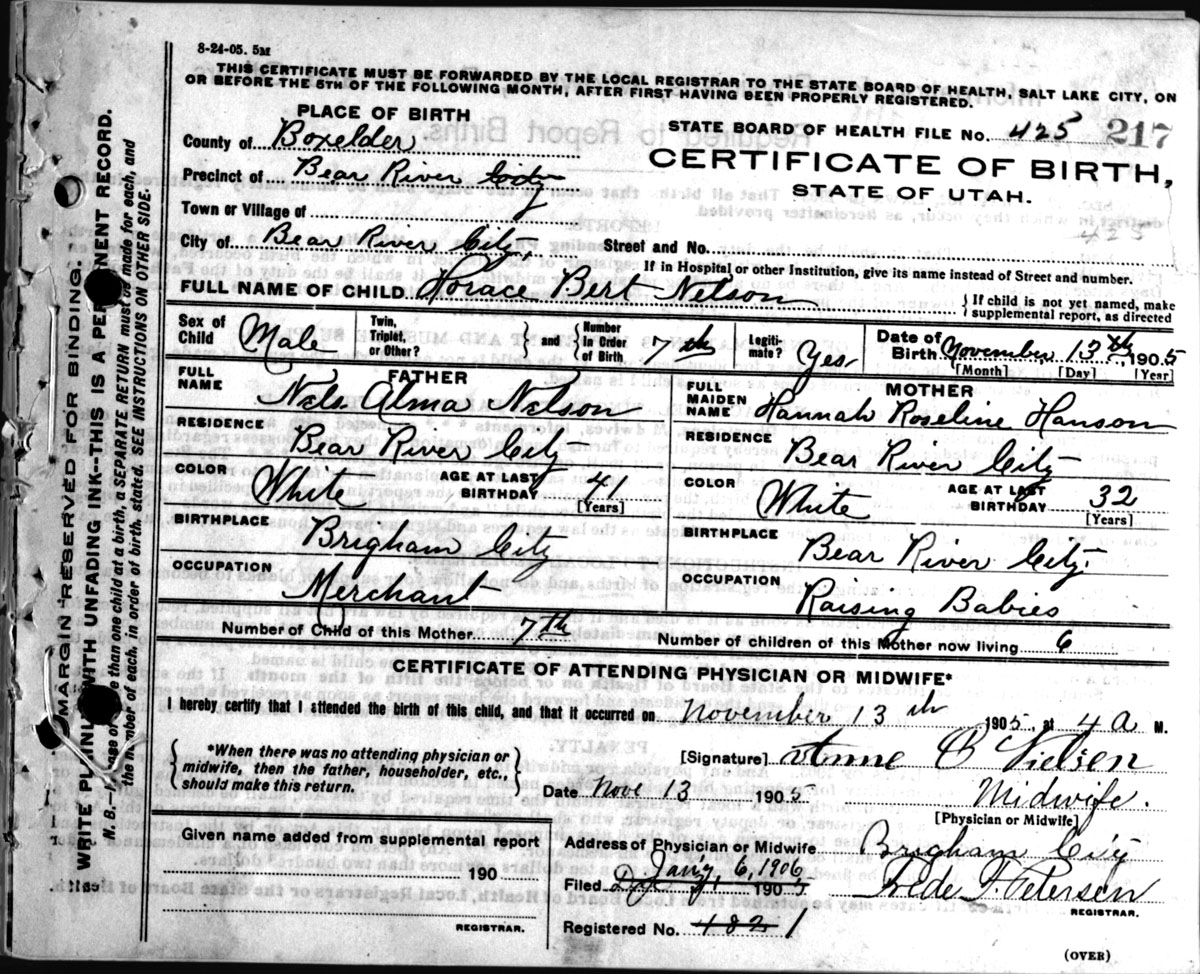 8-24-05. 5M
THIS CERTIFICATE MUST BE FORWARDED BY THE LOCAL REGISTRAR TO THE STATE BOARD OF HEALTH, SALT LAKE CITY, ON
OR BEFORE THE 5TH OF THE FOLLOWING MONTH, AFTER FIRST HAVING BEEN PROPERLY REGISTERED.
PLACE OF BIRTH
County of Boxelder
Precinct of Bear River City
Town or Village of
City of Bear River City,
STATE BOARD OF HEALTH FILE No. 425 217
CERTIFICATE OF BIRTH,
STATE OF UTAH.
425
Street and No.
If in Hospital or other Institution, give its name instead of Street and number.
FULL NAME OF CHILD Horace Bert Nelson
If child is not yet named, make
supplemental report, as directed
Sex of Child Male
Twin, Triplet, or Other?
and Number In Order of Birth 7th
Legiti-mate? Yes
Date of Birth November 13th, 1905
[Month] [Day] [Year]
FATHER
FULL NAME Nels Alma Nelson
RESIDENCE Bear River City
COLOR White AGE AT LAST BIRTHDAY 41
[Years]
BIRTHPLACE Brigham City
OCCUPATION Merchant
MOTHER
FULL MAIDEN NAME Hannah Roseline Hanson
RESIDENCE Bear River City
COLOR White AGE AT LAST BIRTHDAY 32
[Years]
BIRTHPLACE Bear River City.
OCCUPATION Raising Babies
Number of Child of this Mother 7th
Number of children of this Mother now living 6
CERTIFICATE OF ATTENDING PHYSICIAN OR MIDWIFE*
I hereby certify that I attended the birth of this child, and that it occurred on November 13th 1905, at 4 a M.
*When there was no attending physician or
midwife, then the father, householder, etc.,
should make this return.
[Signature] Nielsen
Date Nove 13 1905
Midwife.
[Physician or Midwife]
Given name added from supplemental report
190
REGISTRAR.
Address of Physician or Midwife Brigham City
Jan'y 6, 1906
Filed 190 Petersen
REGISTRAR.
Registered No. 482 1
(OVER)
MARGIN RESERVED FOR BINDING.
WRITE PLAINLY WITH UNFADING INK--THIS IS A PERMANENT RECORD.
N. B.— of more than one child at a birth, a SEPARATE RETURN must be made for each, and
the number of each, in order of birth, stated. SEE INSTRUCTIONS ON OTHER SIDE.